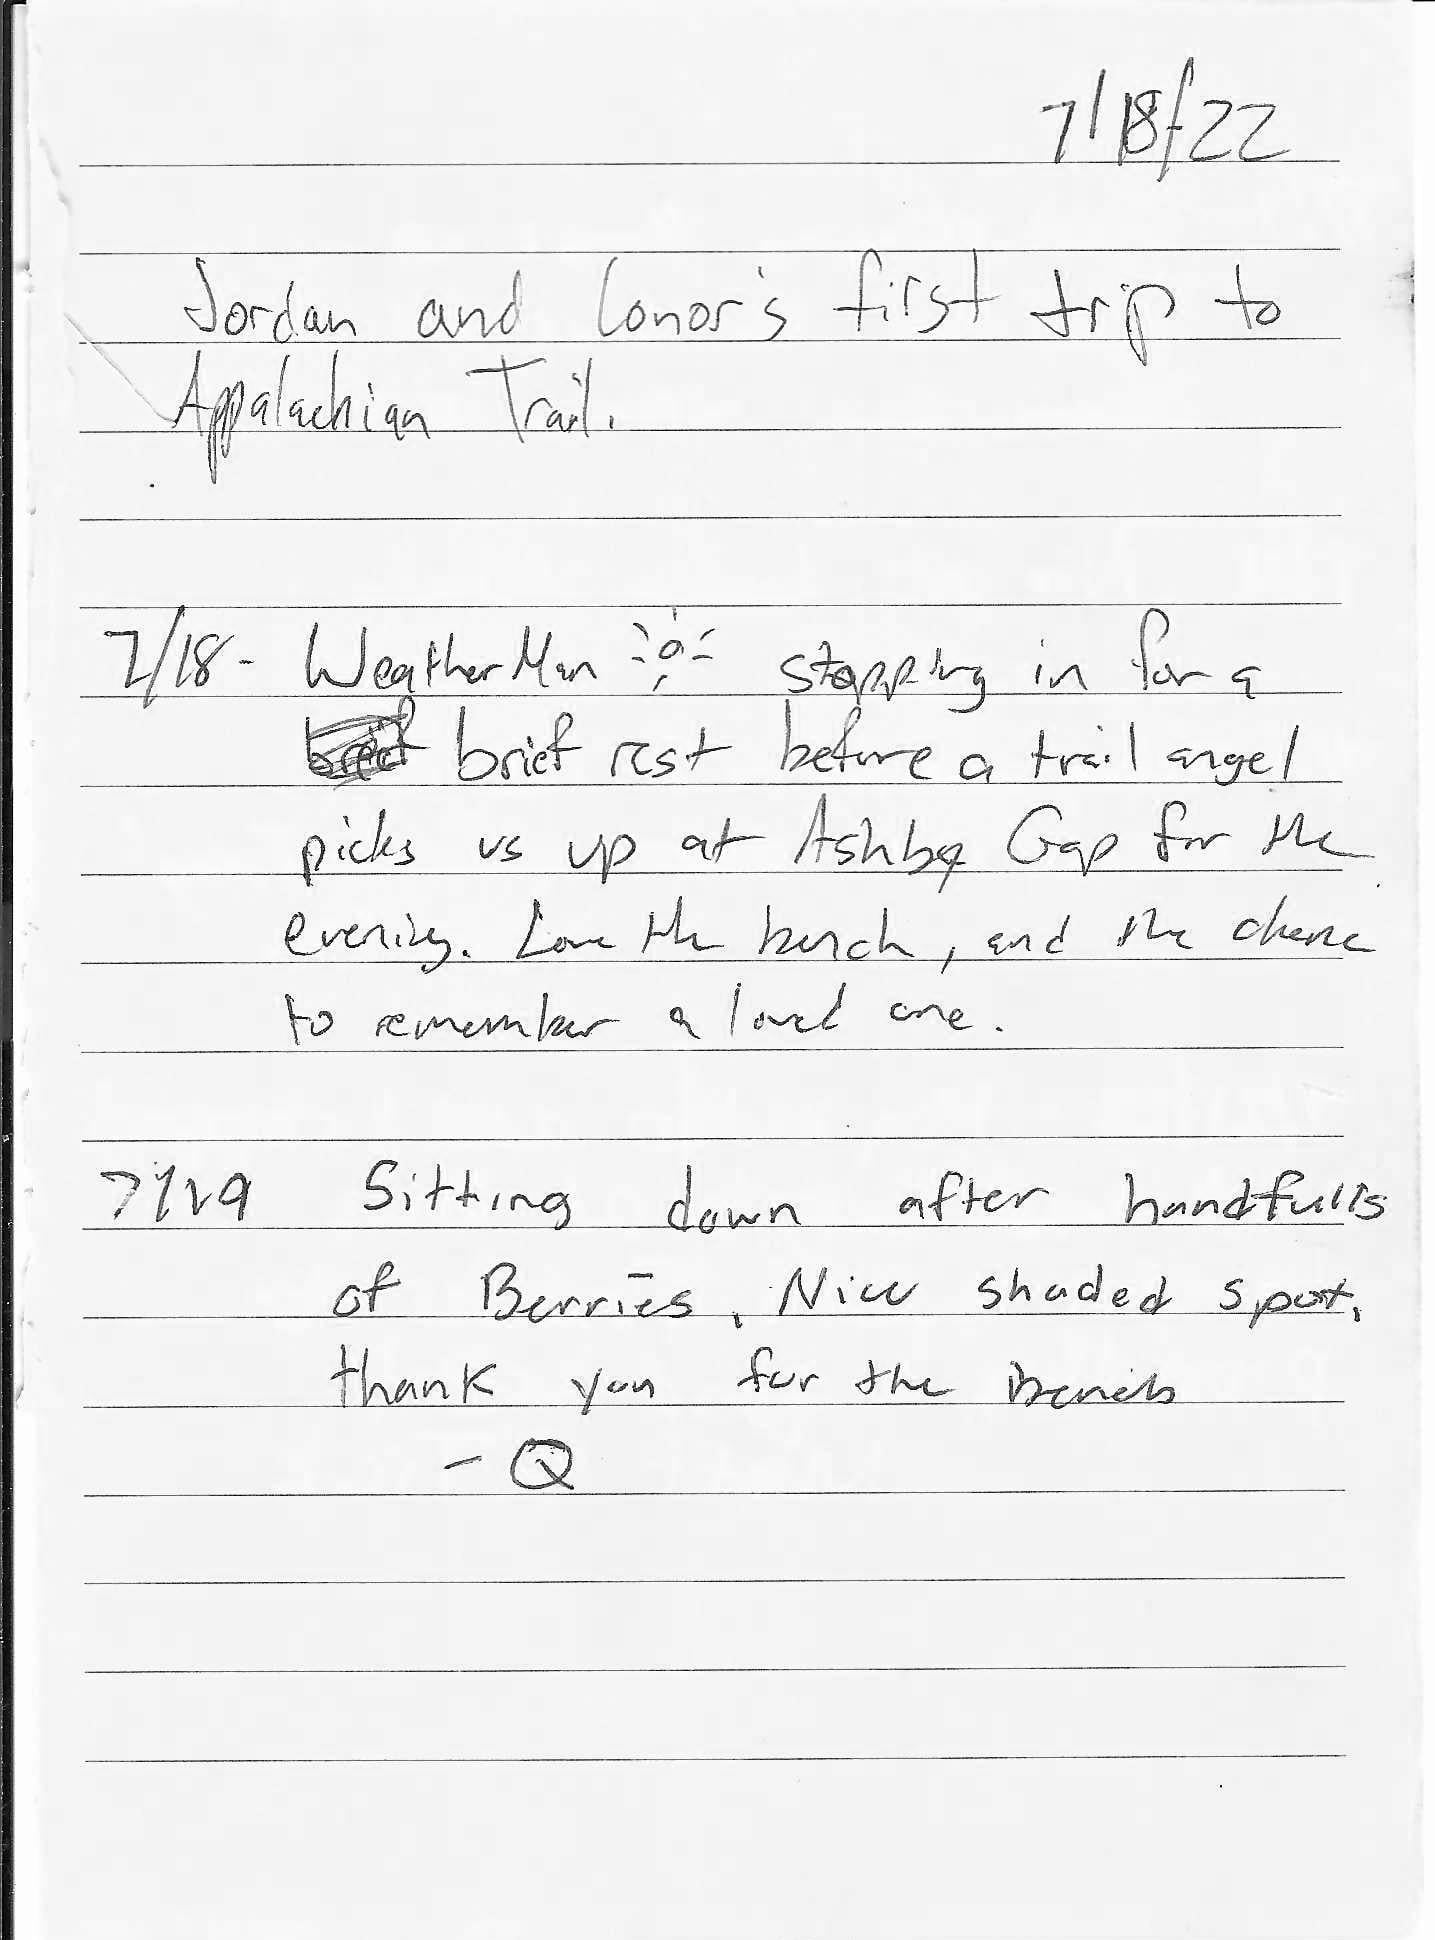 7/18/22
Jordan and Conor's first trip to
Appalachian Trail.
7/18- WeatherMan stopping in for a
brief rest before a trail angel
picks us up at Ashby Gap for the
evening. Love the bench, and the chance
to remember a loved one.
7/19 Sitting down after handfulls
of Berries, Nice shaded spot,
thank you for the bench
- Q